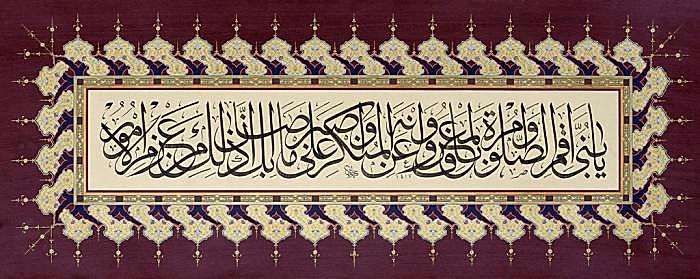 يا بني أقم الصلوة وأمر بالمعروف وانه عن المنكر واصبر على ما أصابك إن ذلك من عزم الأمور